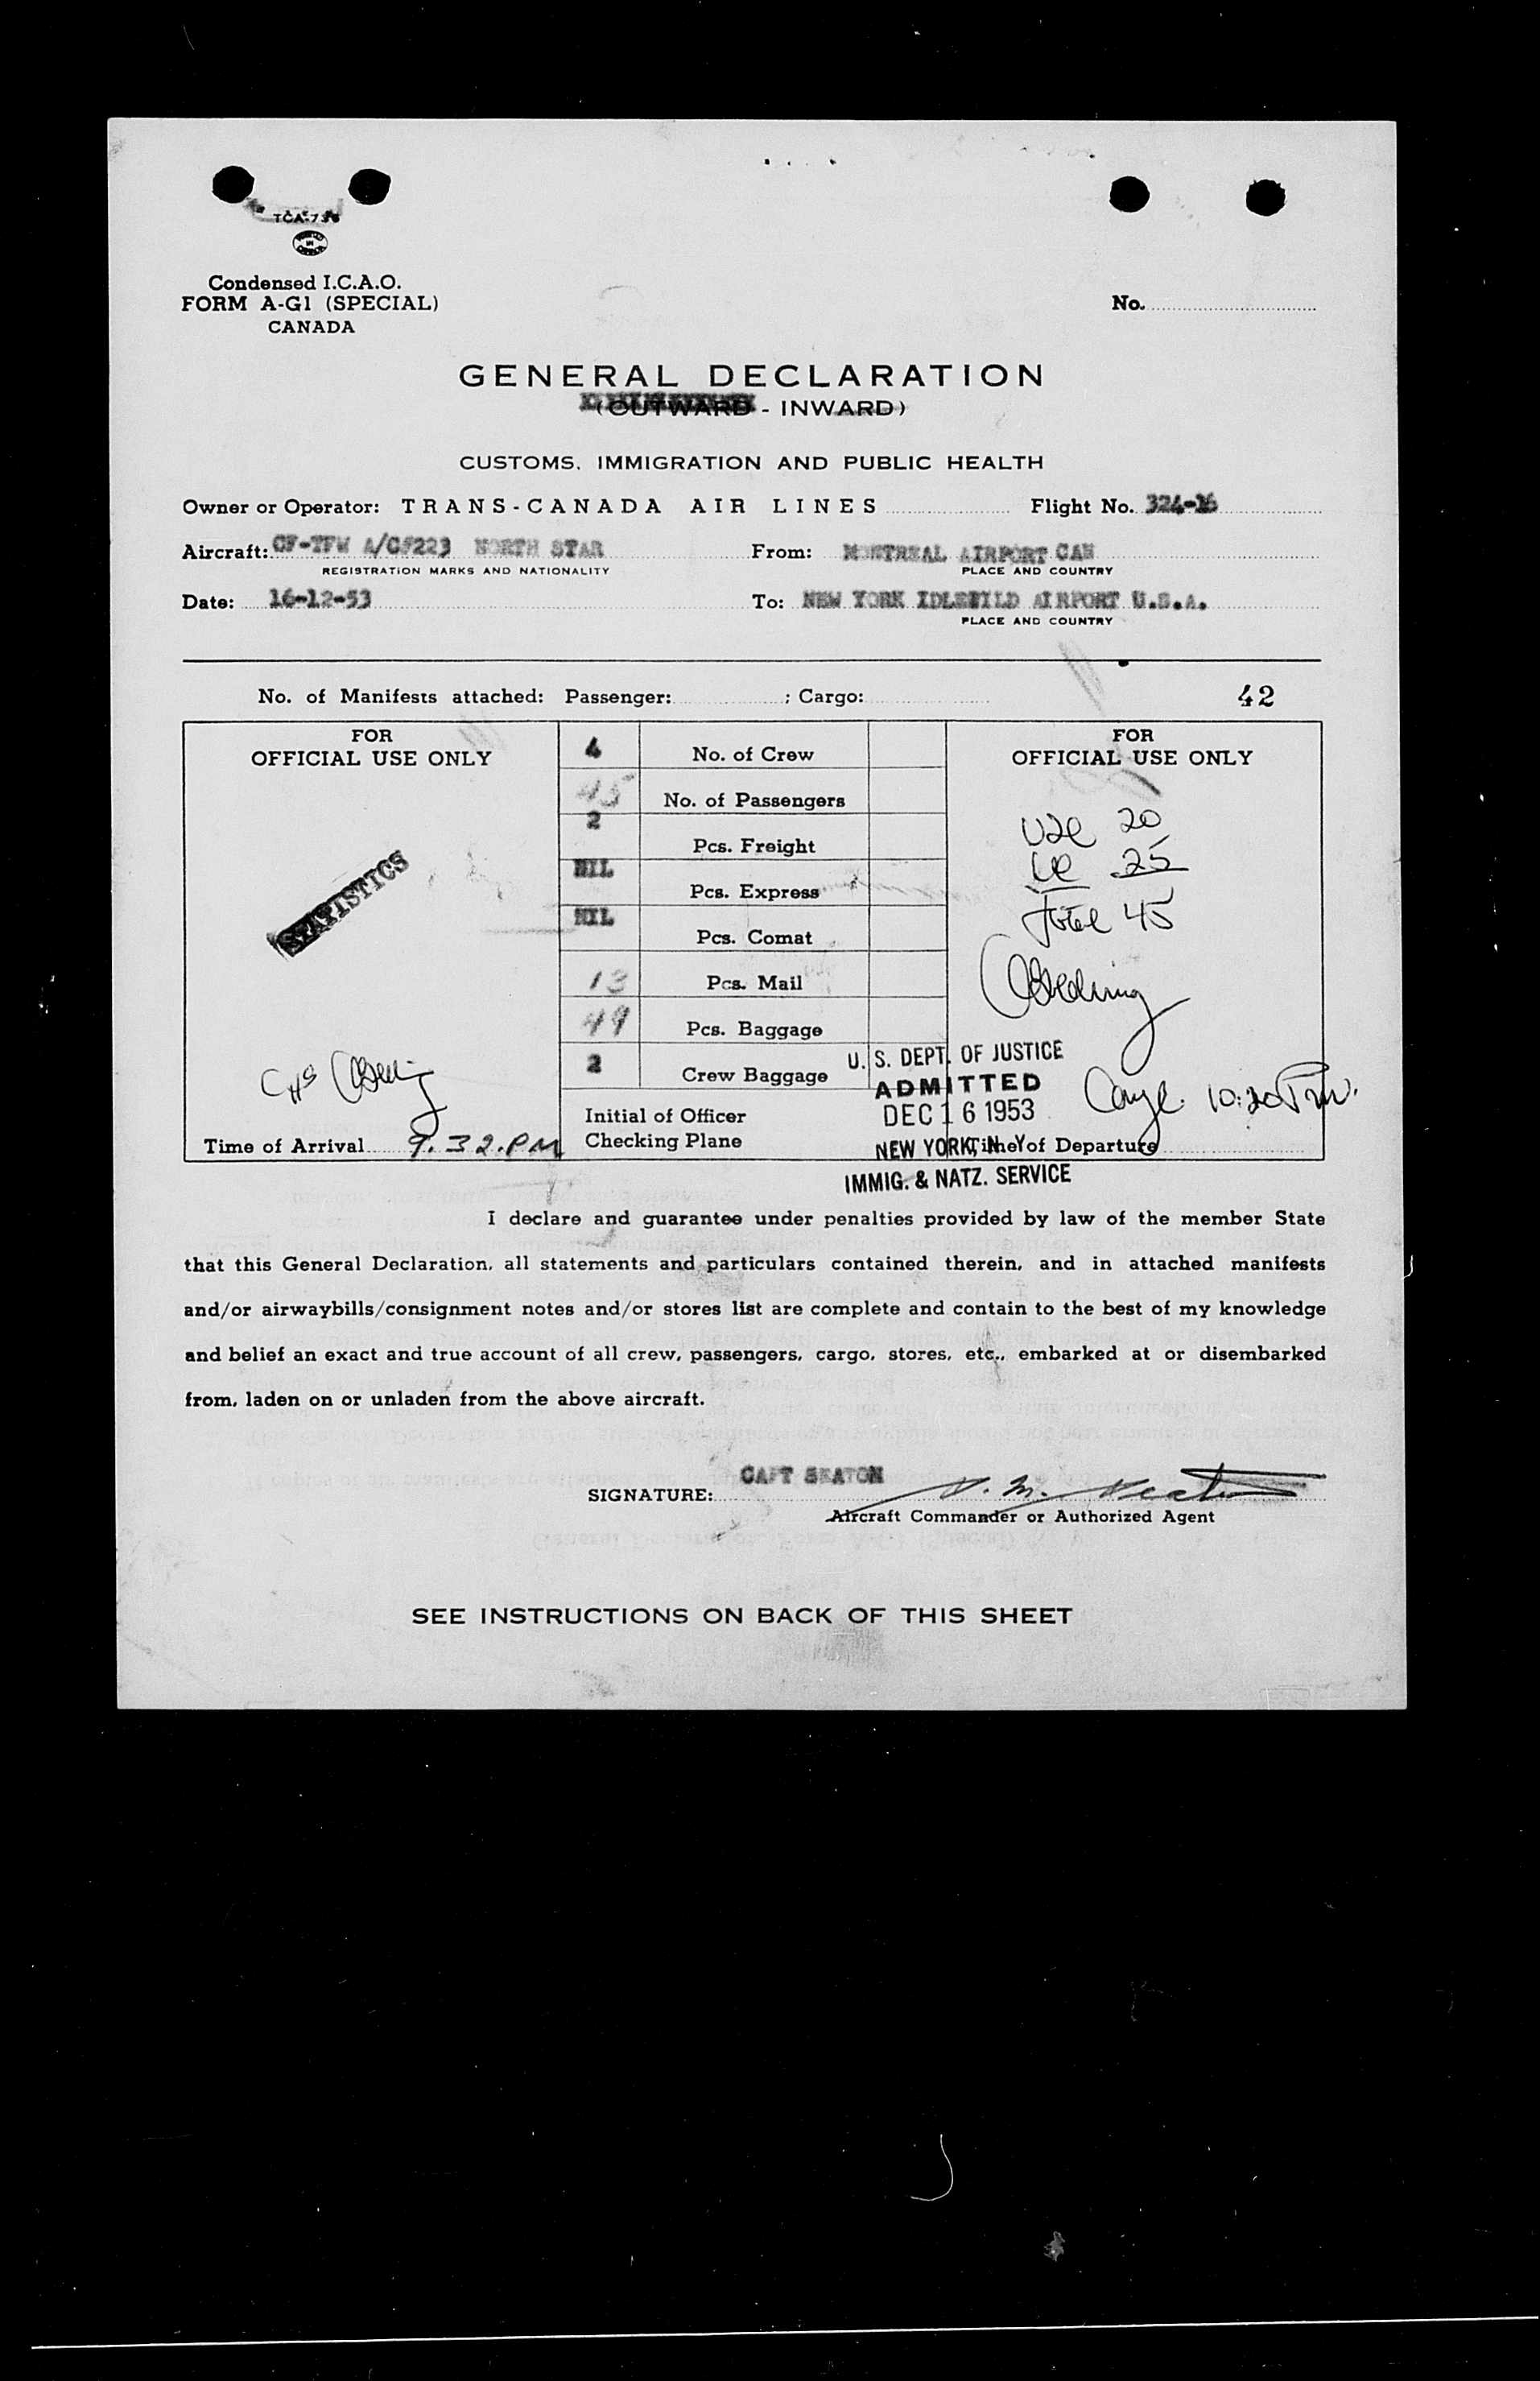 TCA-736
Condensed I.C.A.O.
FORM A-G1 (SPECIAL)
CANADA
No.
GENERAL DECLARATION
(OUTWARD - INWARD)
CUSTOMS, IMMIGRATION AND PUBLIC HEALTH
Owner or Operator: TRANS-CANADA AIR LINES Flight No. 324-16
Aircraft: CF-TFW A/C#223 NORTH STAR From: MONTREAL AIRPORT CAN
REGISTRATION MARKS AND NATIONALITY PLACE AND COUNTRY
Date: 16-12-53 To: NEW YORK IDLEWILD AIRPORT U.S.A.
PLACE AND COUNTRY
No. of Manifests attached: Passenger: ; Cargo: 42
FOR
OFFICIAL USE ONLY
STATISTICS
Time of Arrival 9.32.PM
4 No. of Crew
45 No. of Passengers
2 Pcs. Freight
NIL Pcs. Express
NIL Pcs. Comat
13 Pcs. Mail
49 Pcs. Baggage
2 Crew Baggage
Initial of Officer
Checking Plane
FOR
OFFICIAL USE ONLY
20
25
Total 45
U. S. DEPT. OF JUSTICE
ADMITTED
DEC 16 1953
NEW YORK, N. Y.
IMMIG. & NATZ. SERVICE
10:20 PM.
Time of Departure
I declare and guarantee under penalties provided by law of the member State
that this General Declaration, all statements and particulars contained therein, and in attached manifests
and/or airwaybills/consignment notes and/or stores list are complete and contain to the best of my knowledge
and belief an exact and true account of all crew, passengers, cargo, stores, etc., embarked at or disembarked
from, laden on or unladen from the above aircraft.
CAPT SEATON
SIGNATURE:
Aircraft Commander or Authorized Agent
SEE INSTRUCTIONS ON BACK OF THIS SHEET